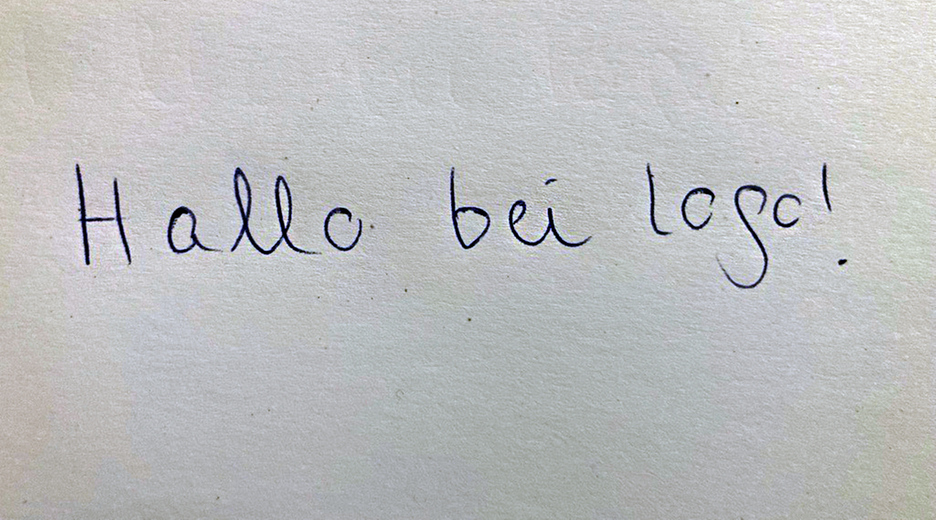 Hallo bei logo!